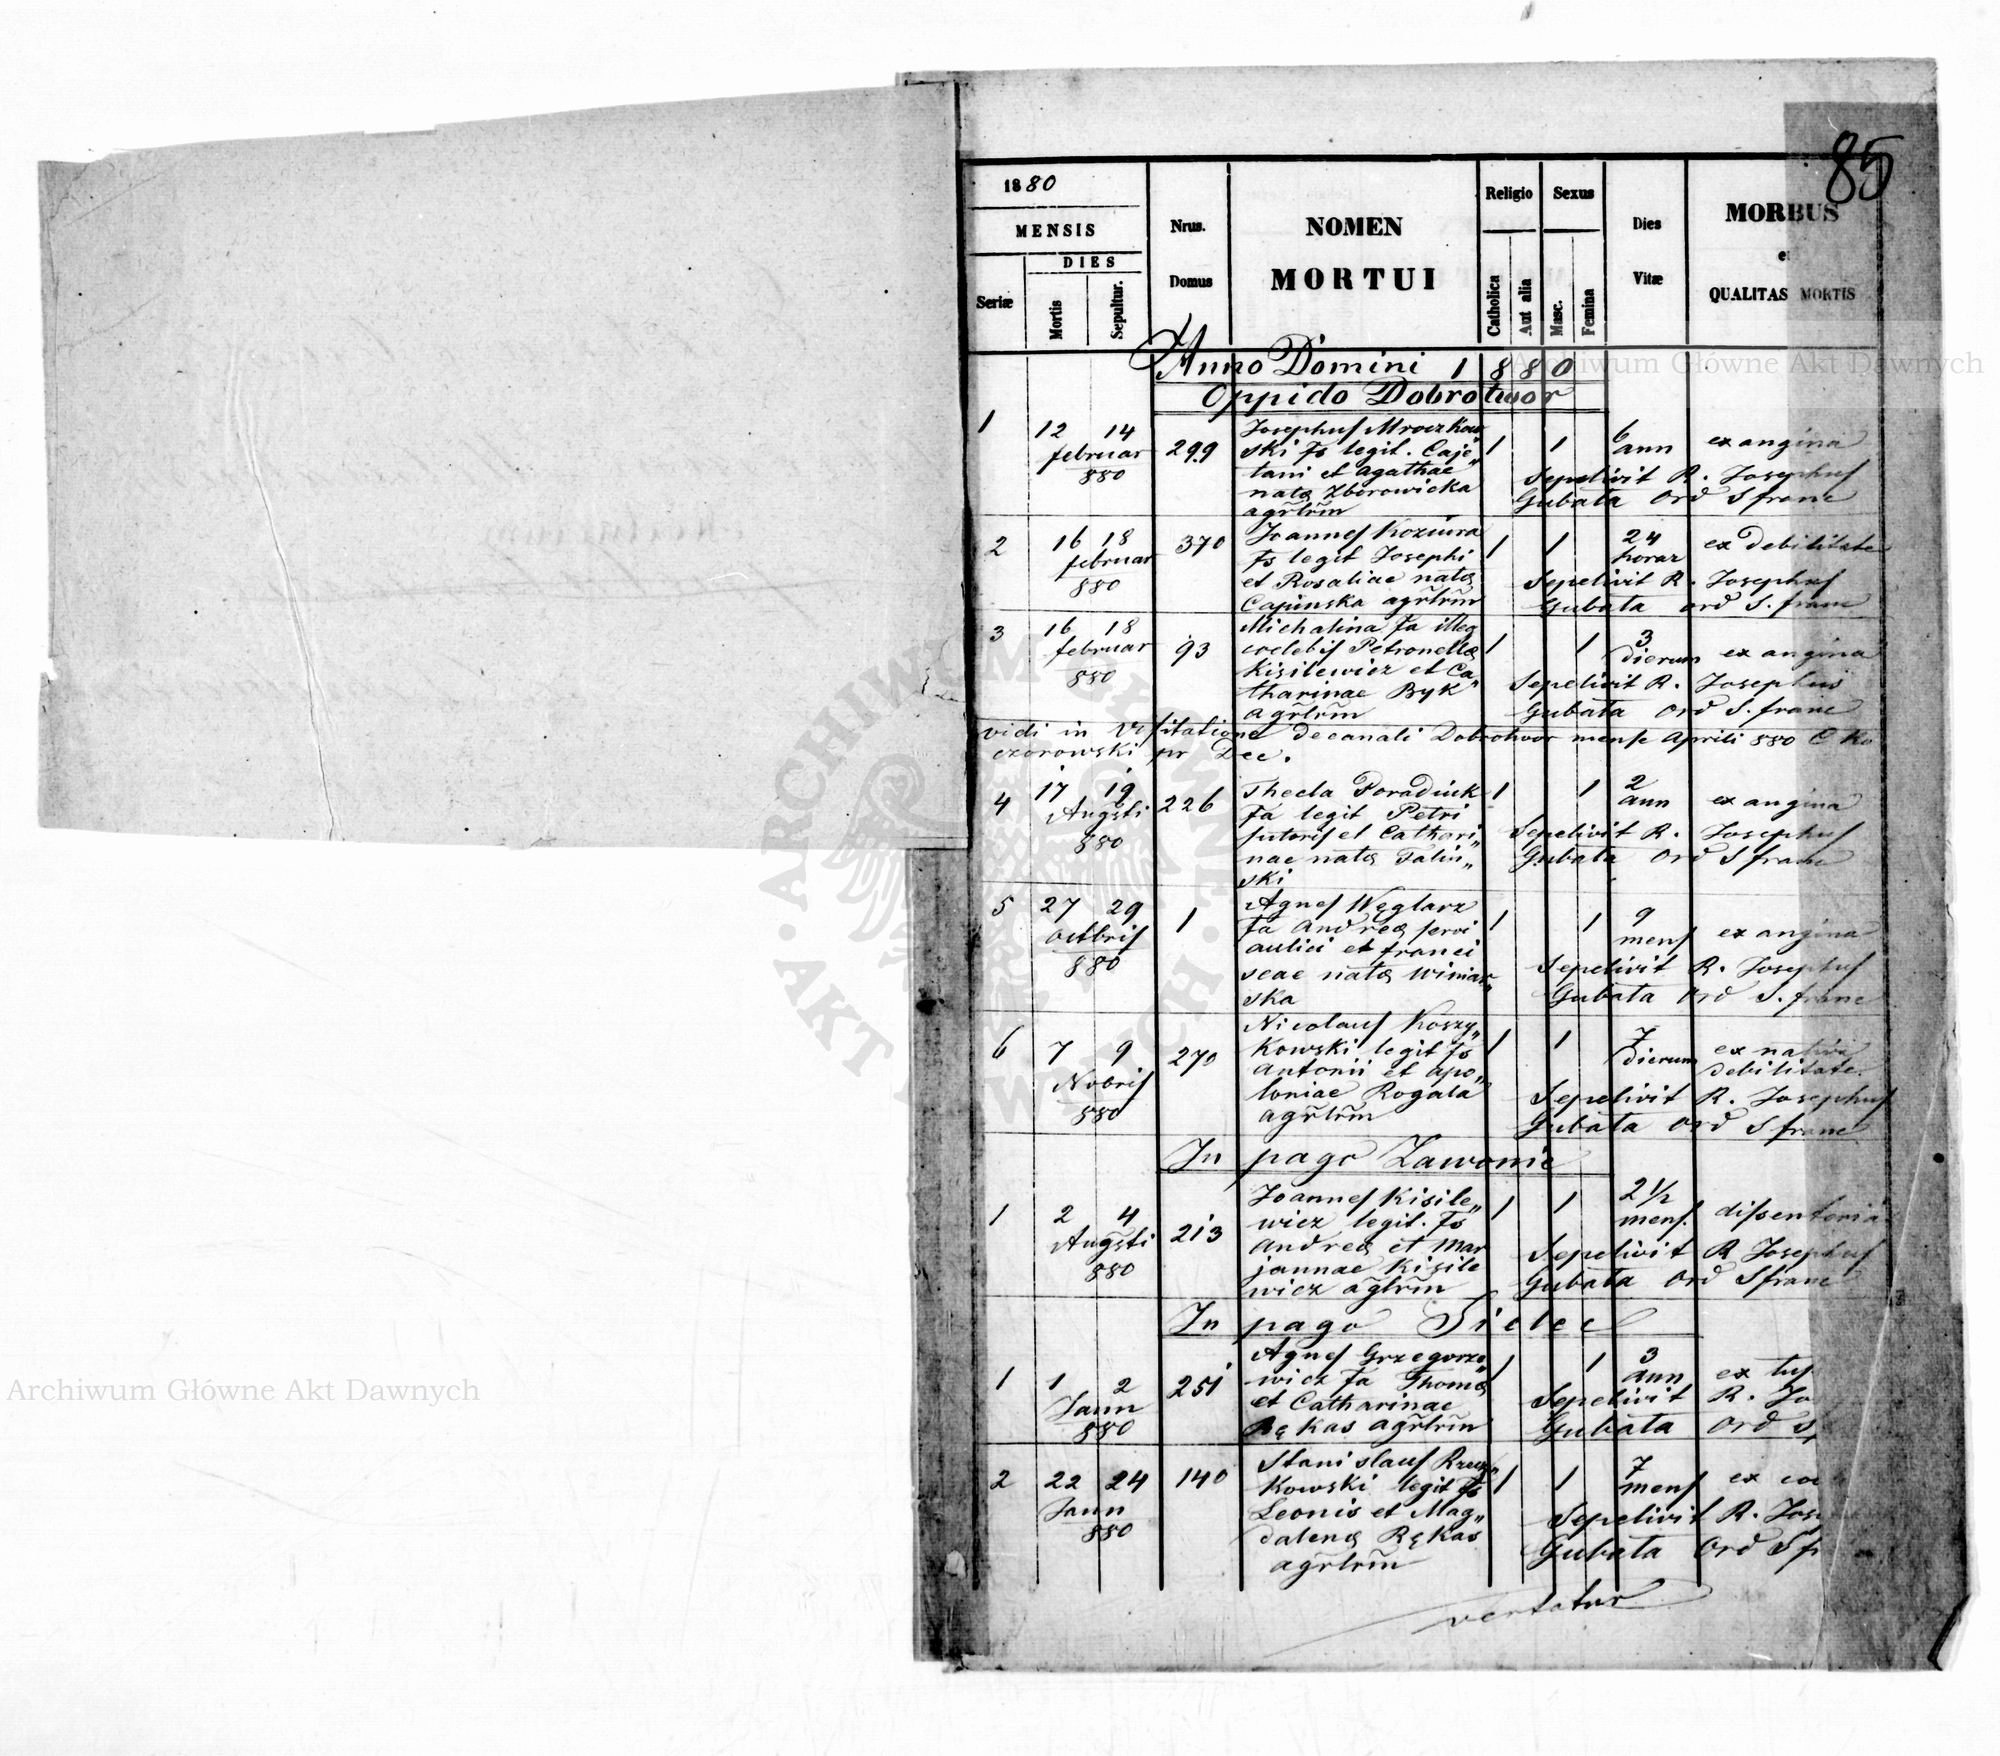 85
1880
MENSIS
DIES
Seriæ
Mortis
Sepultur.
Nrus.
Domus
NOMEN
MORTUI
Religio
Catholica
Aut alia
Sexus
Masc.
Femina
Dies
Vitæ
MORBUS
et
QUALITAS MORTIS
Anno Domini 1880
Oppido Dobrotwor
1
12 14
februar
880
299
Josephus Mroczkow„
ski fs legit. Caje„
tani et Agathae
nata Zborowicka
agrlrm
1 1
6
ann
ex angina
Sepelivit R. Josephus
Gubata Ord S franc
2
16 18
februar
880
370
Joannes Koziura
fs legit Josephi
et Rosaliae nata
Capinska agrlrm
1 1
24
horar
ex debilitate
Sepelivit R. Josephus
Gubata Ord S. franc
3
16 18
februar
880
93
Michalina fa illeg
coelebis Petronella
Kisilewicz et Ca
tharinae Byk„
agrlrm
1 1
3
dierum
ex angina
Sepelivit R. Josephus
Gubata Ord S. franc
vidi in Visitatione decanali Dobrotwor mense Aprili 880 C Ko
czorowski pr Dec.
4
17 19
Augsti
880
226
Thecla Poradiuk
fa legit Petri
sutoris et Cathari„
nae nata Talin„
ski
1 1
2
ann
ex angina
Sepelivit R. Josephus
Gubata Ord S franc
5
27 29
octbris
880
1
Agnes Węglarz
fa Andrea servi
aulici et franci
scae nata Winiar„
ska
1 1
9
mens
ex angina
Sepelivit R. Josephus
Gubata Ord S. franc
6
7 9
Nobris
880
270
Nicolaus Koszy„
kowski legit fs
Antonii et Apo„
loniae Rogala
agrlrm
1 1
7
dierum
ex nativi
debilitate.
Sepelivit R. Josephus
Gubata Ord S franc
In pago Zawonie
1
2 4
Augsti
880
213
Joannes Kisile„
wicz legit. fs
Andrea et Mar
jannae Kisile
wicz aglrm
1 1
2 1/2
mens.
dissentoria
Sepelivit R Josephus
Gubata Ord S franc
In pago Sielec
1
1 2
Jann
880
251
Agnes Grzegorze„
wicz fa Thoma
et Catharinae
Rękas agrlrm
1 1
3
ann
ex tus
Sepelivit R. Jo
Gubata Ord S
2
22 24
Jann
880
140
Stanislaus
kowski legit fs
Leonis et Mag„
dalena Rękas
agrlrm
1 1
7
mens
ex
Sepelivit R. Jose
Gubata Ord S f
vertatur
Archiwum Główne Akt Dawnych
Archiwum Główne Akt Dawnych
ARCHIWUM GŁÓWNE
AKT DAWNYCH